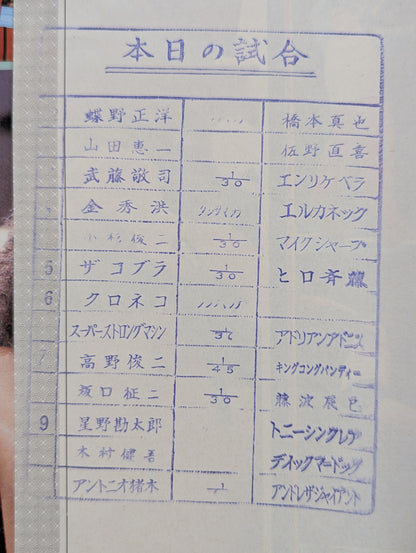 本日の試合
蝶野正洋 〃〃 橋本真也
山田恵一 佐野直喜
武藤敬司 1/30 エンリケベラ
金秀洪 タンタイカ エルカネック
小杉俊二 1/30 マイクシャープ
5 ザコブラ 1/30 ヒロ斉藤
6 クロネコ 〃〃
スーパーストロングマシン アドリアンアドニス
7 高野俊二 1/45 キングコングバンディー
坂口征二 1/30 藤波辰巳
9 星野勘太郎 トニーシングレア
木村健吾 デイックマードック
アントニオ猪木 1/ アンドレザジャイアント